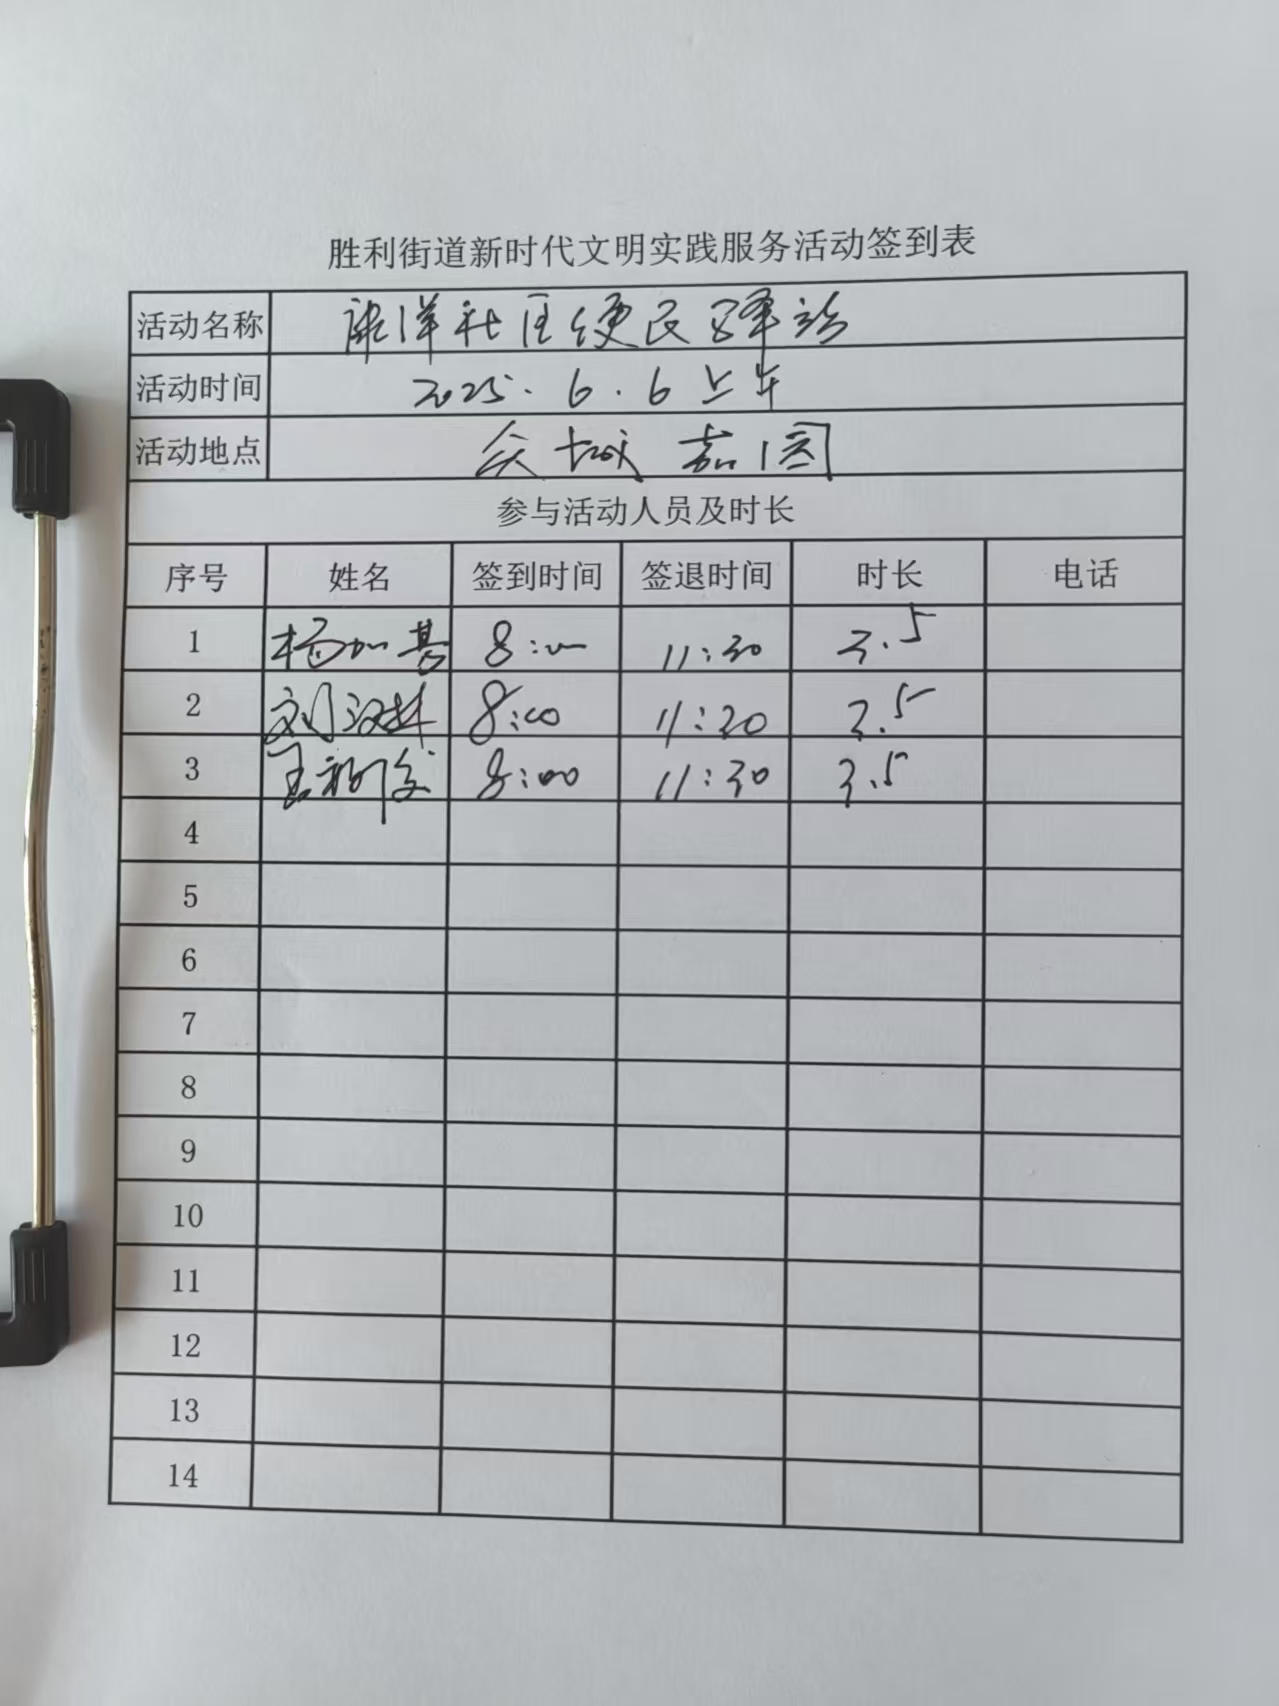 胜利街道新时代文明实践服务活动签到表
活动名称 洋社区便民驿站
活动时间 2025.6.6上午
活动地点 众城嘉园
参与活动人员及时长
序号 姓名 签到时间 签退时间 时长 电话
1 杨加基 8:00 11:30 3.5
2 刘汉林 8:00 11:30 3.5
3 王 8:00 11:30 3.5
4
5
6
7
8
9
10
11
12
13
14